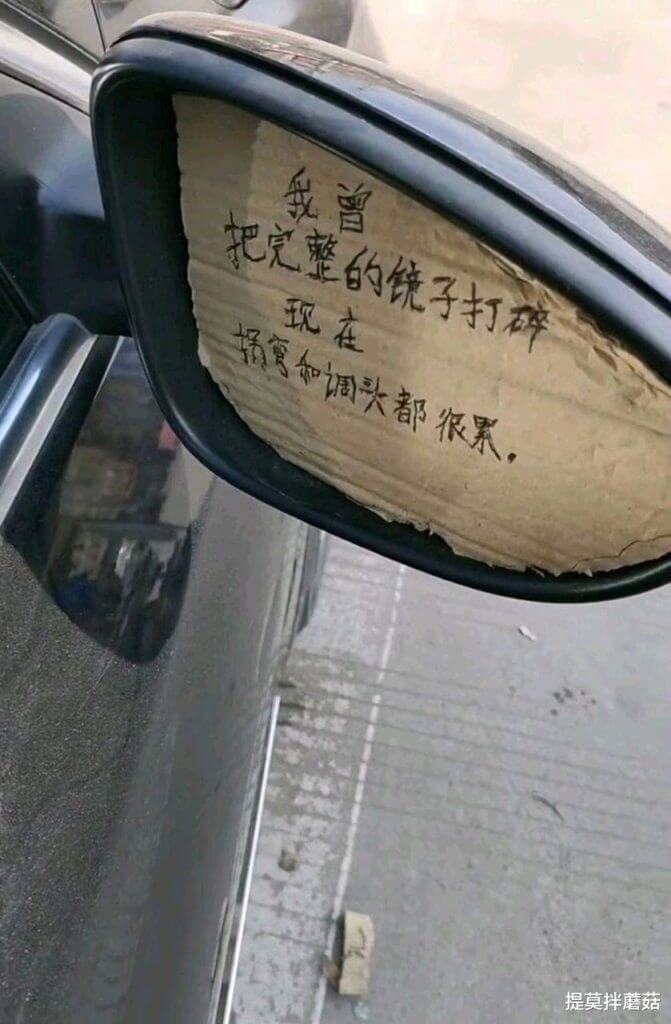 我曾
把完整的镜子打碎
现在
拐弯和调头都很累.
提莫拌蘑菇